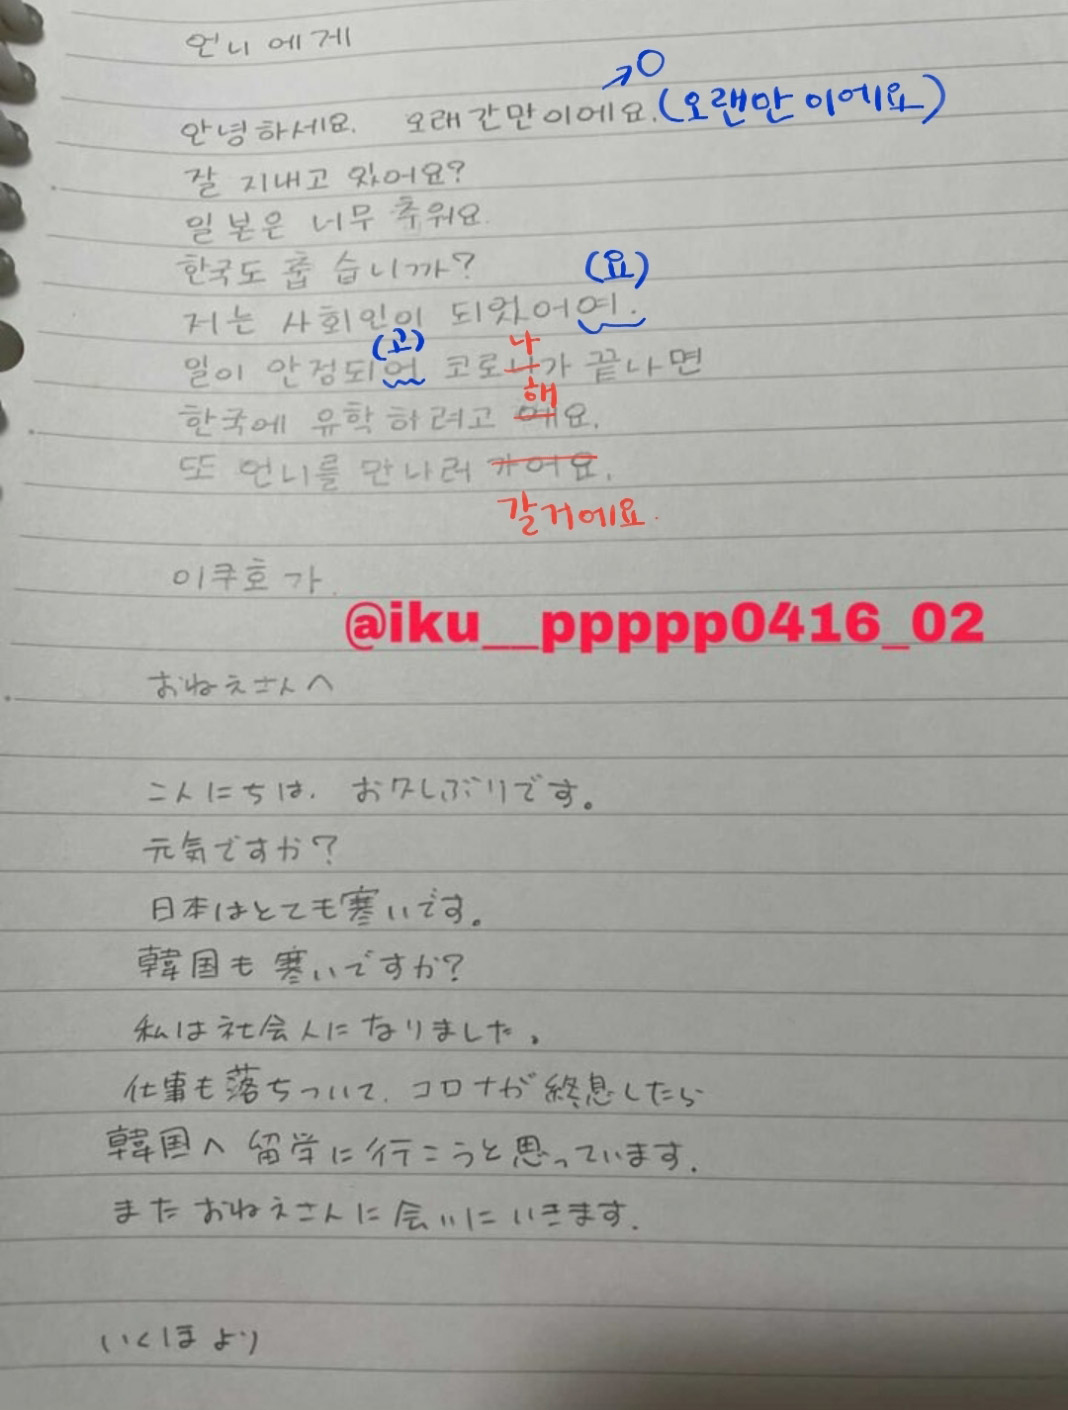 언니에게
↗○
안녕하세요. 오래간만이에요. (오랜만이에요)
잘 지내고 있어요?
일본은 너무 추워요.
한국도 춥습니까?
(요)
저는 사회인이 되었어여.
(고) 나
일이 안정되언 코로나가 끝나면
해
한국에 유학하려고 예요.
또 언니를 만나러 가어요.
갈거에요.
이쿠호가
@iku__ppppp0416_02
おねえさんへ
こんにちは. お久しぶりです。
元気ですか?
日本はとても寒いです。
韓国も寒いですか?
私は社会人になりました。
仕事も落ちついて. コロナが終息したら
韓国へ留学に行こうと思っています.
またおねえさんに会いにいきます.
いくほより